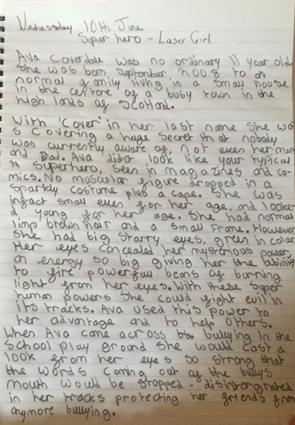 Wednesday 10th June
Super hero - Laser Girl
Ava Coverdale was no ordinary 11 year old
She was born September 2008 to a
normal family living in a small house
in the centre of a busy town in the
high lands of Scotland.
With 'Cover' in her last name she wa-
s covering a huge secret that nobody
was currently aware of, not even her mum
and Dad. Ava didnt look like your typical
Superhero, seen in magazines and co-
mics. No muscular figure dropped in a
sparkly costume plus a cape. She was
infact small even for her age, and looke-
d young for her age. She had normal
limp brown hair and a small frame. However
she had big starry eyes, green in colour
Her eyes concealed her mysterious power
an energy so big giving her the ability
to fire powerfull beams of burning
light from her eyes. With these super
human powers she could fight evil in
its tracks. Ava used this power to
her advantage and to help others.
When Ava came across bullying in the
school play ground she would cast a
look from her eyes so strong that
the words coming out of the bullys
mouth would be stopped - disintergrated
in her tracks protecting her friends from
anymore bullying.